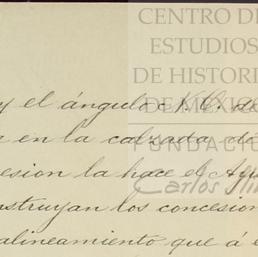 CENTRO DE
ESTUDIOS
DE HISTORI
DE MÉXICO
FUNDACI
Carlos Slim
y el ángulo N. O. de
en la calzada de
esion la hace el Ayu
nstruyan los concesion
alineamiento que á e